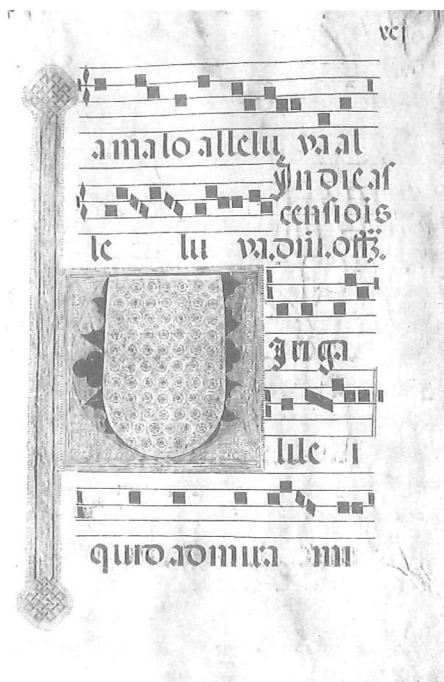 vcj
a ma lo allelu ya al
In die as
censiõis
le lu ya. dñi. offz.
Iri ga
lile i
quid admira mi